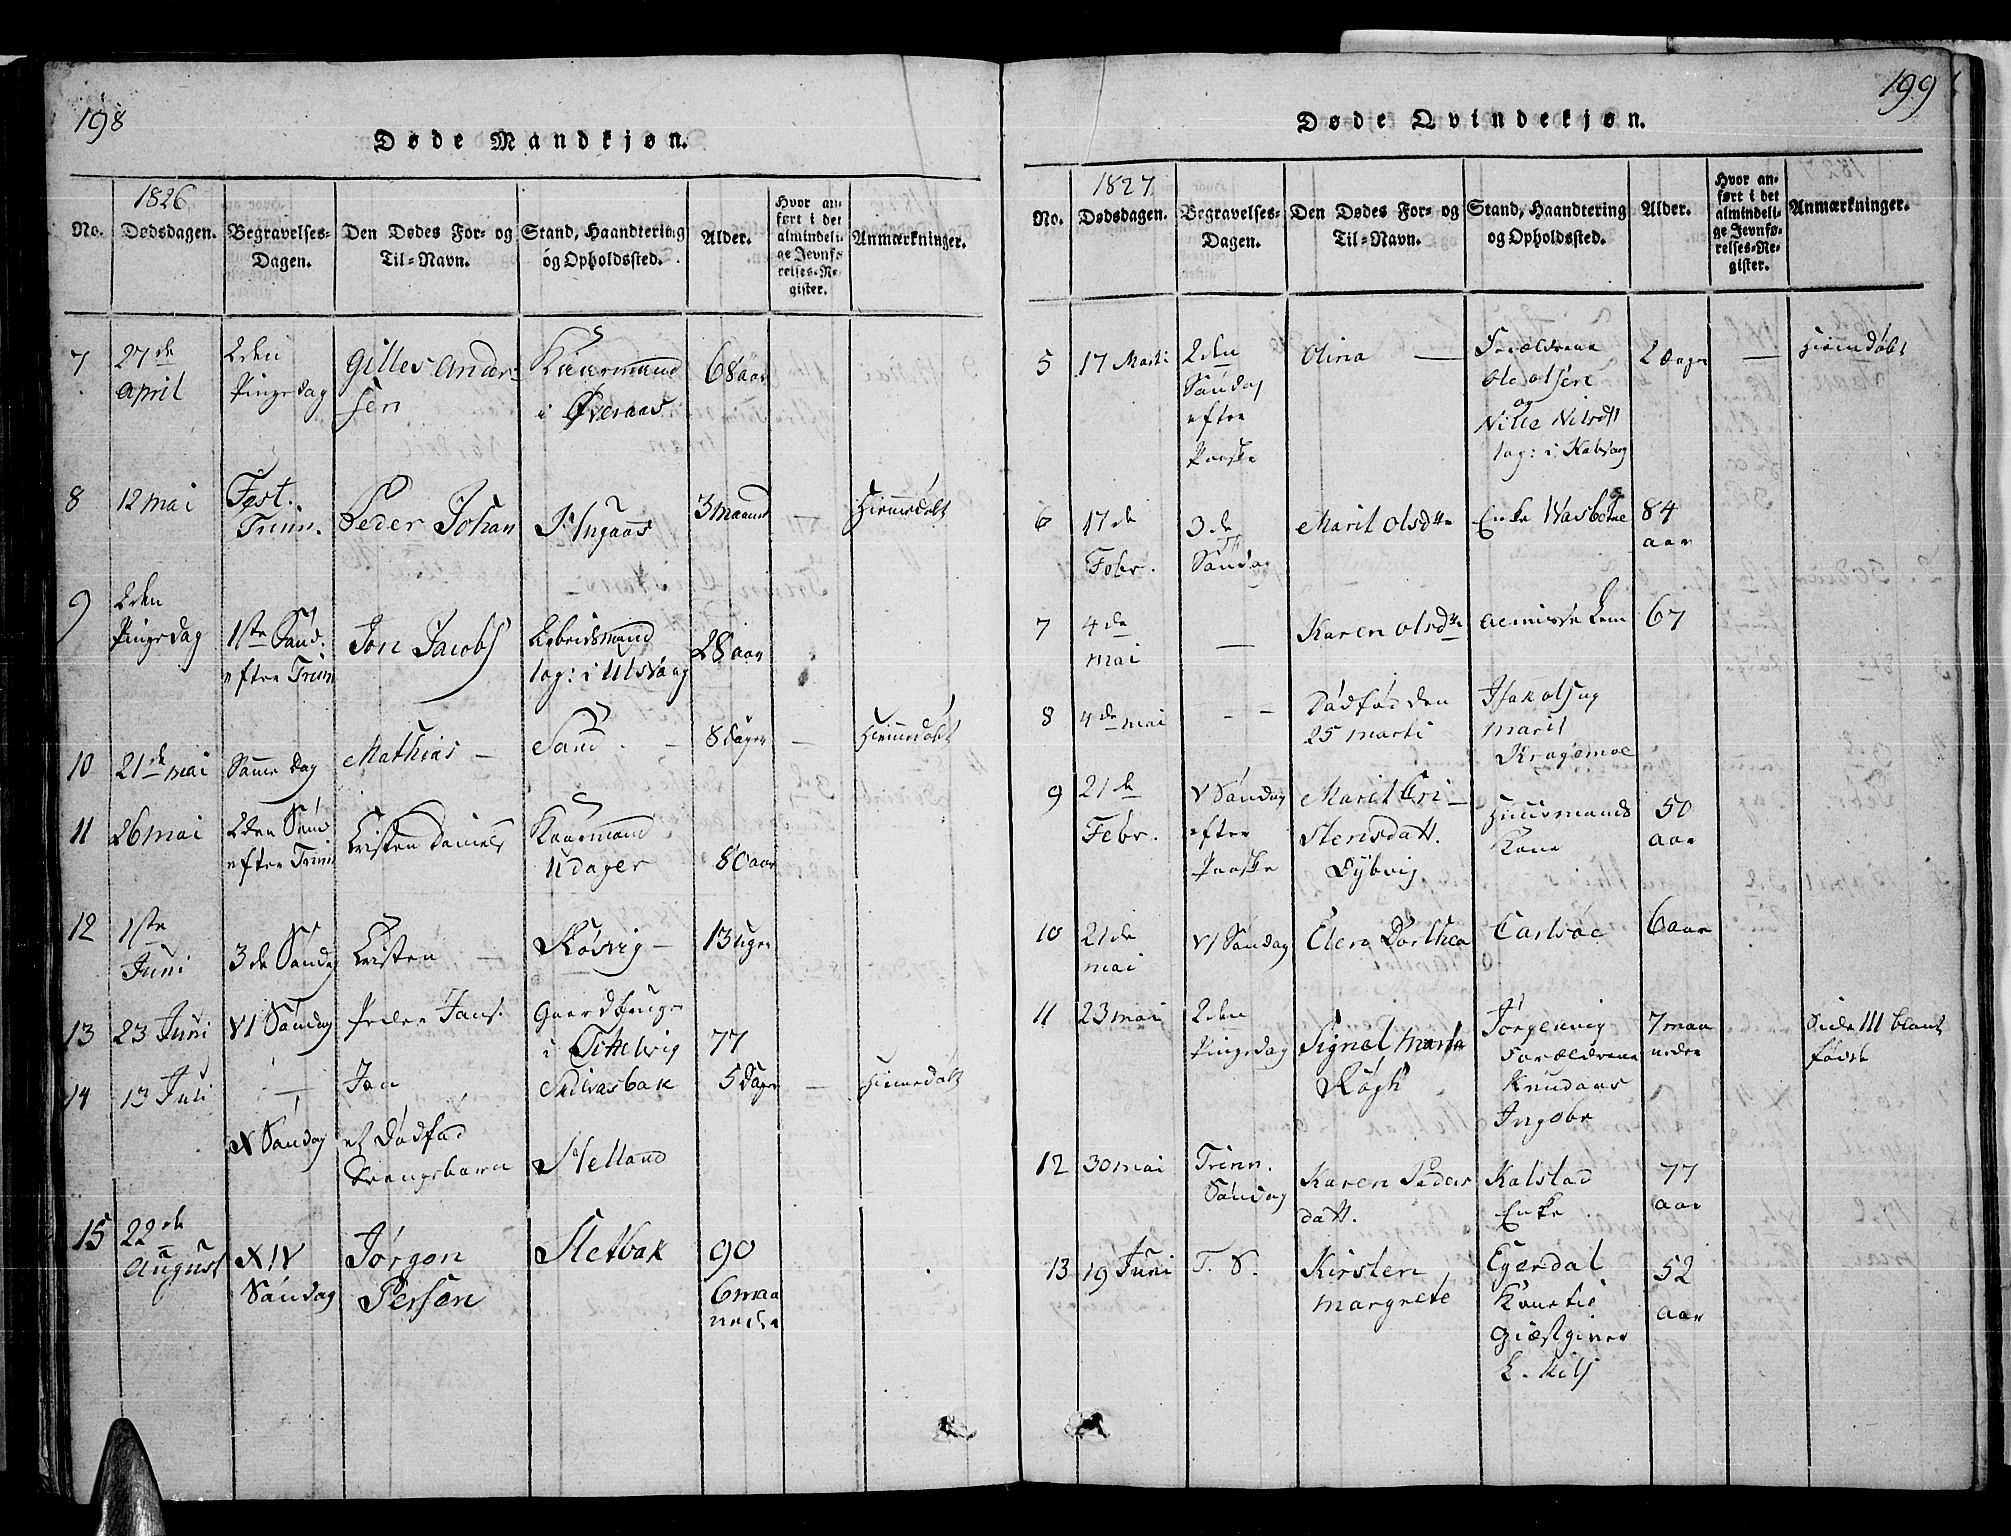 198
Døde Mandkjøn.
No.
1826
Dødsdagen.
Begravelses-
Dagen.
Den Dødes For- og
Til-Navn.
Stand, Haandtering
og Opholdssted.
Alder.
Hvor an-
ført i det
almindeli-
ge Jevnfø-
relses-Re-
gister.
Anmærkninger.
7
27de
april
2den
Pingsdag
Gilles Ander-
sen
Kaarmand
i Øveraas
68 aar
8
12 mai
Fest.
Trinn.
Peder Johan
3 maand
Hiemmedøbt
9
2den
Pingsdag
1ste Sønd.
efter Trin
Jon Jacobs
Arbeidsmand
log: i Ulsvaag
28 aar
10
21de mai
Samme dag
Mathias —
Sand. —
8 dager
—
Hiemmedøbt
11
26 mai
2den Sønd
efter Trin
Cristen Daniels
Kaarmand
80 aar
12
1ste
Juni
3de Søndag
Cristen —
Kølvig —
13 uger
13
23 Juni
VI Søndag
Peder Jans.
Gaardbruger
i Tittelvig
77
14
13 Juli
—
Jon
5 Dager
—
Hiemmedøbt
X Søndag
et Dødfød
Drengebarn
Helland
15
22de
August
XIV
Søndag
Jørgen
Persen
Sletbak
90
6 maa
neder
199
Døde Qvindekjøn.
No.
1827
Dødsdagen.
Begravelses-
Dagen.
Den Dødes For- og
Til-Navn.
Stand, Haandtering
og Opholdssted.
Alder.
Hvor an-
ført i det
almindeli-
ge Jevnfø-
relses-Re-
gister.
Anmærkninger.
5
17 Marti
2den
Søndag
efter
Paaske
Olina —
Forældrene
Ole Olsen
og
Nille Nilsdtt
log: i Kalvaag
2 Dage
—
Hiemdøbt
6
17de
Febr.
3de
Søndag
Marit Olsdtr
Enke Wasbotne
84
aar
7
4de
mai
—
Karen Olsdtr
Almisse Lem
67
8
4de mai
— —
Dødfød den
25 marti
Isak Ols og
Marit
Kragemoe
9
21de
Febr.
V Søndag
efter
Paaske
Marit Cri-
stensdatt.
Dybvig
Huusmands
Kone
50
aar
10
21de
mai
VI Søndag
Elen Dorthea
Carlsøe
6 aar
11
23 mai
2den
Pingsdag
Signel Marta
Røgh
Jørgenvig
Forældrene
Knud Aas
Ingebr
7 maa
neder
Side 111 blant
fødte
12
30 mai
Trinn.
Søndag
Karen Peders
datt.
Kalstad
Enke
77
aar
13
19 Juni
T. S.
Kirsten
Margrete
Egerdal
Kone til
Giæstgiver
E. Nils
52
aar